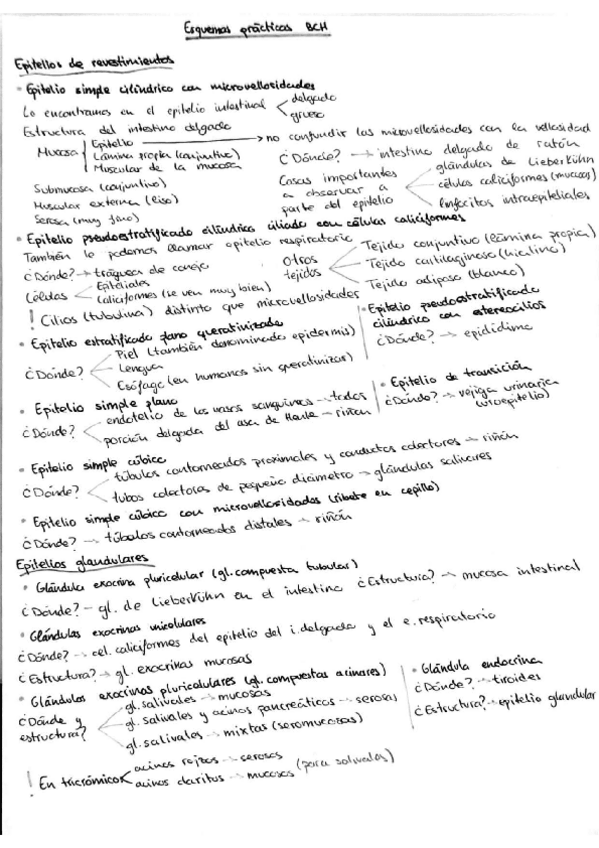 Esquemas prácticas BCH
Epitelios de revestimientos
• Epitelio simple cilíndrico con microvellosidades
Lo encontramos en el epitelio intestinal < delgado
grueso
Estructura del intestino delgado
Mucosa { Epitelio → no confundir las microvellosidades con la vellosidad
Lámina propia (conjuntivo)
Muscular de la mucosa
¿Dónde? → intestino delgado de ratón
Submucosa (conjuntivo)
Muscular externa (liso)
Serosa (muy fino)
Cosas importantes a observar a parte del epitelio
glándulas de Lieberkühn
células caliciformes (mucosas)
linfocitos intraepiteliales
• Epitelio pseudoestratificado cilíndrico ciliado con células caliciformes
También le podemos llamar epitelio respiratorio
¿Dónde? → tráquea de conejo
Células < Epiteliales
Caliciformes (se ven muy bien)
Otros tejidos
Tejido conjuntivo (lámina propia)
Tejido cartilaginoso (hialino)
Tejido adiposo (blanco)
! Cilios (tubulina) distinto que microvellosidades
• Epitelio estratificado plano queratinizado
¿Dónde? < Piel (también denominado epidermis)
Lengua
Esófago (en humanos sin queratinizar)
• Epitelio pseudoestratificado
cilíndrico con estereocilios
¿Dónde? → epidídimo
• Epitelio simple plano
¿Dónde? < endotelio de los vasos sanguíneos → todos
porción delgada del asa de Henle → riñón
• Epitelio de transición
¿Dónde? → vejiga urinaria
(uroepitelio)
• Epitelio simple cúbico
¿Dónde? < túbulos contorneados proximales y conductos colectores → riñón
tubos colectores de pequeño diámetro → glándulas salivares
• Epitelio simple cúbico con microvellosidades (ribete en cepillo)
¿Dónde? → túbulos contorneados distales → riñón
Epitelios glandulares
• Glándula exocrina pluricelular (gl. compuesta tubular)
¿Dónde? - gl. de Lieberkühn en el intestino ¿Estructura? → mucosa intestinal
• Glándulas exocrinas unicelulares
¿Dónde? → cel. caliciformes del epitelio del i. delgado y el e. respiratorio
¿Estructura? → gl. exocrinas mucosas
• Glándulas exocrinas pluricelulares (gl. compuestas acinares)
¿Dónde y estructura?
gl. salivales → mucosas
gl. salivales y acinos pancreáticos → serosas
gl. salivales → mixtas (seromucosas)
• Glándula endocrina
¿Dónde? → tiroides
¿Estructura? → epitelio glandular
! En tricrómico < acinos rojos → serosos
acinos claritos → mucosos (para salivales)